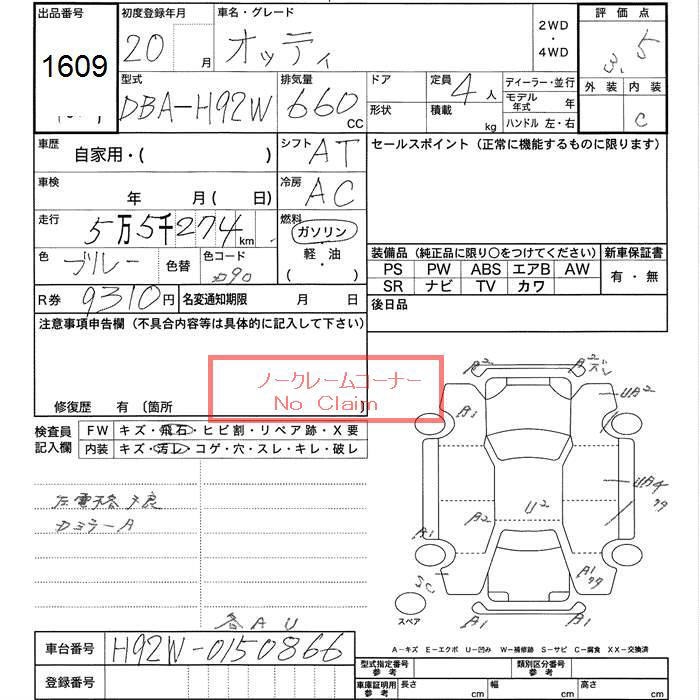 出品番号 初度登録年月 車名・グレード 2WD ・ 4WD 評価点
1609 20 月 オッティ 3.5
型式 排気量 ドア 定員 4 人 ディーラー・並行 外装 内装
DBA-H92W 660 CC 形状 積載 kg モデル年式 年 C
ハンドル 左・右
車歴 自家用・( ) シフト AT セールスポイント (正常に機能するものに限ります)
車検 年 月 ( 日) 冷房 AC
走行 5万5千274 km 燃料 ガソリン
軽・油
( )
色 ブルー 色替 色コード 装備品 (純正品に限り○をつけてください) 新車保証書
PS PW ABS エアB AW 有・無
SR ナビ TV カワ
R券 9310円 名変通知期限 月 日 後日品
注意事項申告欄 (不具合内容等は具体的に記入して下さい)
ノークレームコーナー
No Claim
修復歴 有 〔箇所
検査員記入欄 FW キズ・飛石・ヒビ割・リペア跡・X要
内装 キズ・汚レ・コゲ・穴・スレ・キレ・破レ
A2
A1
UA2
A2
U2
UA4
A1
SC
A1
A1
A1
スペア
ドミラーA
各AU
A-キズ E-エクボ U-凹み W-補修跡 S-サビ C-腐食 XX-交換済
車台番号 H92W-0150866
登録番号
型式指定番号 参考 類別区分番号 参考
車庫証明用 参考 長さ cm 幅 cm 高さ cm